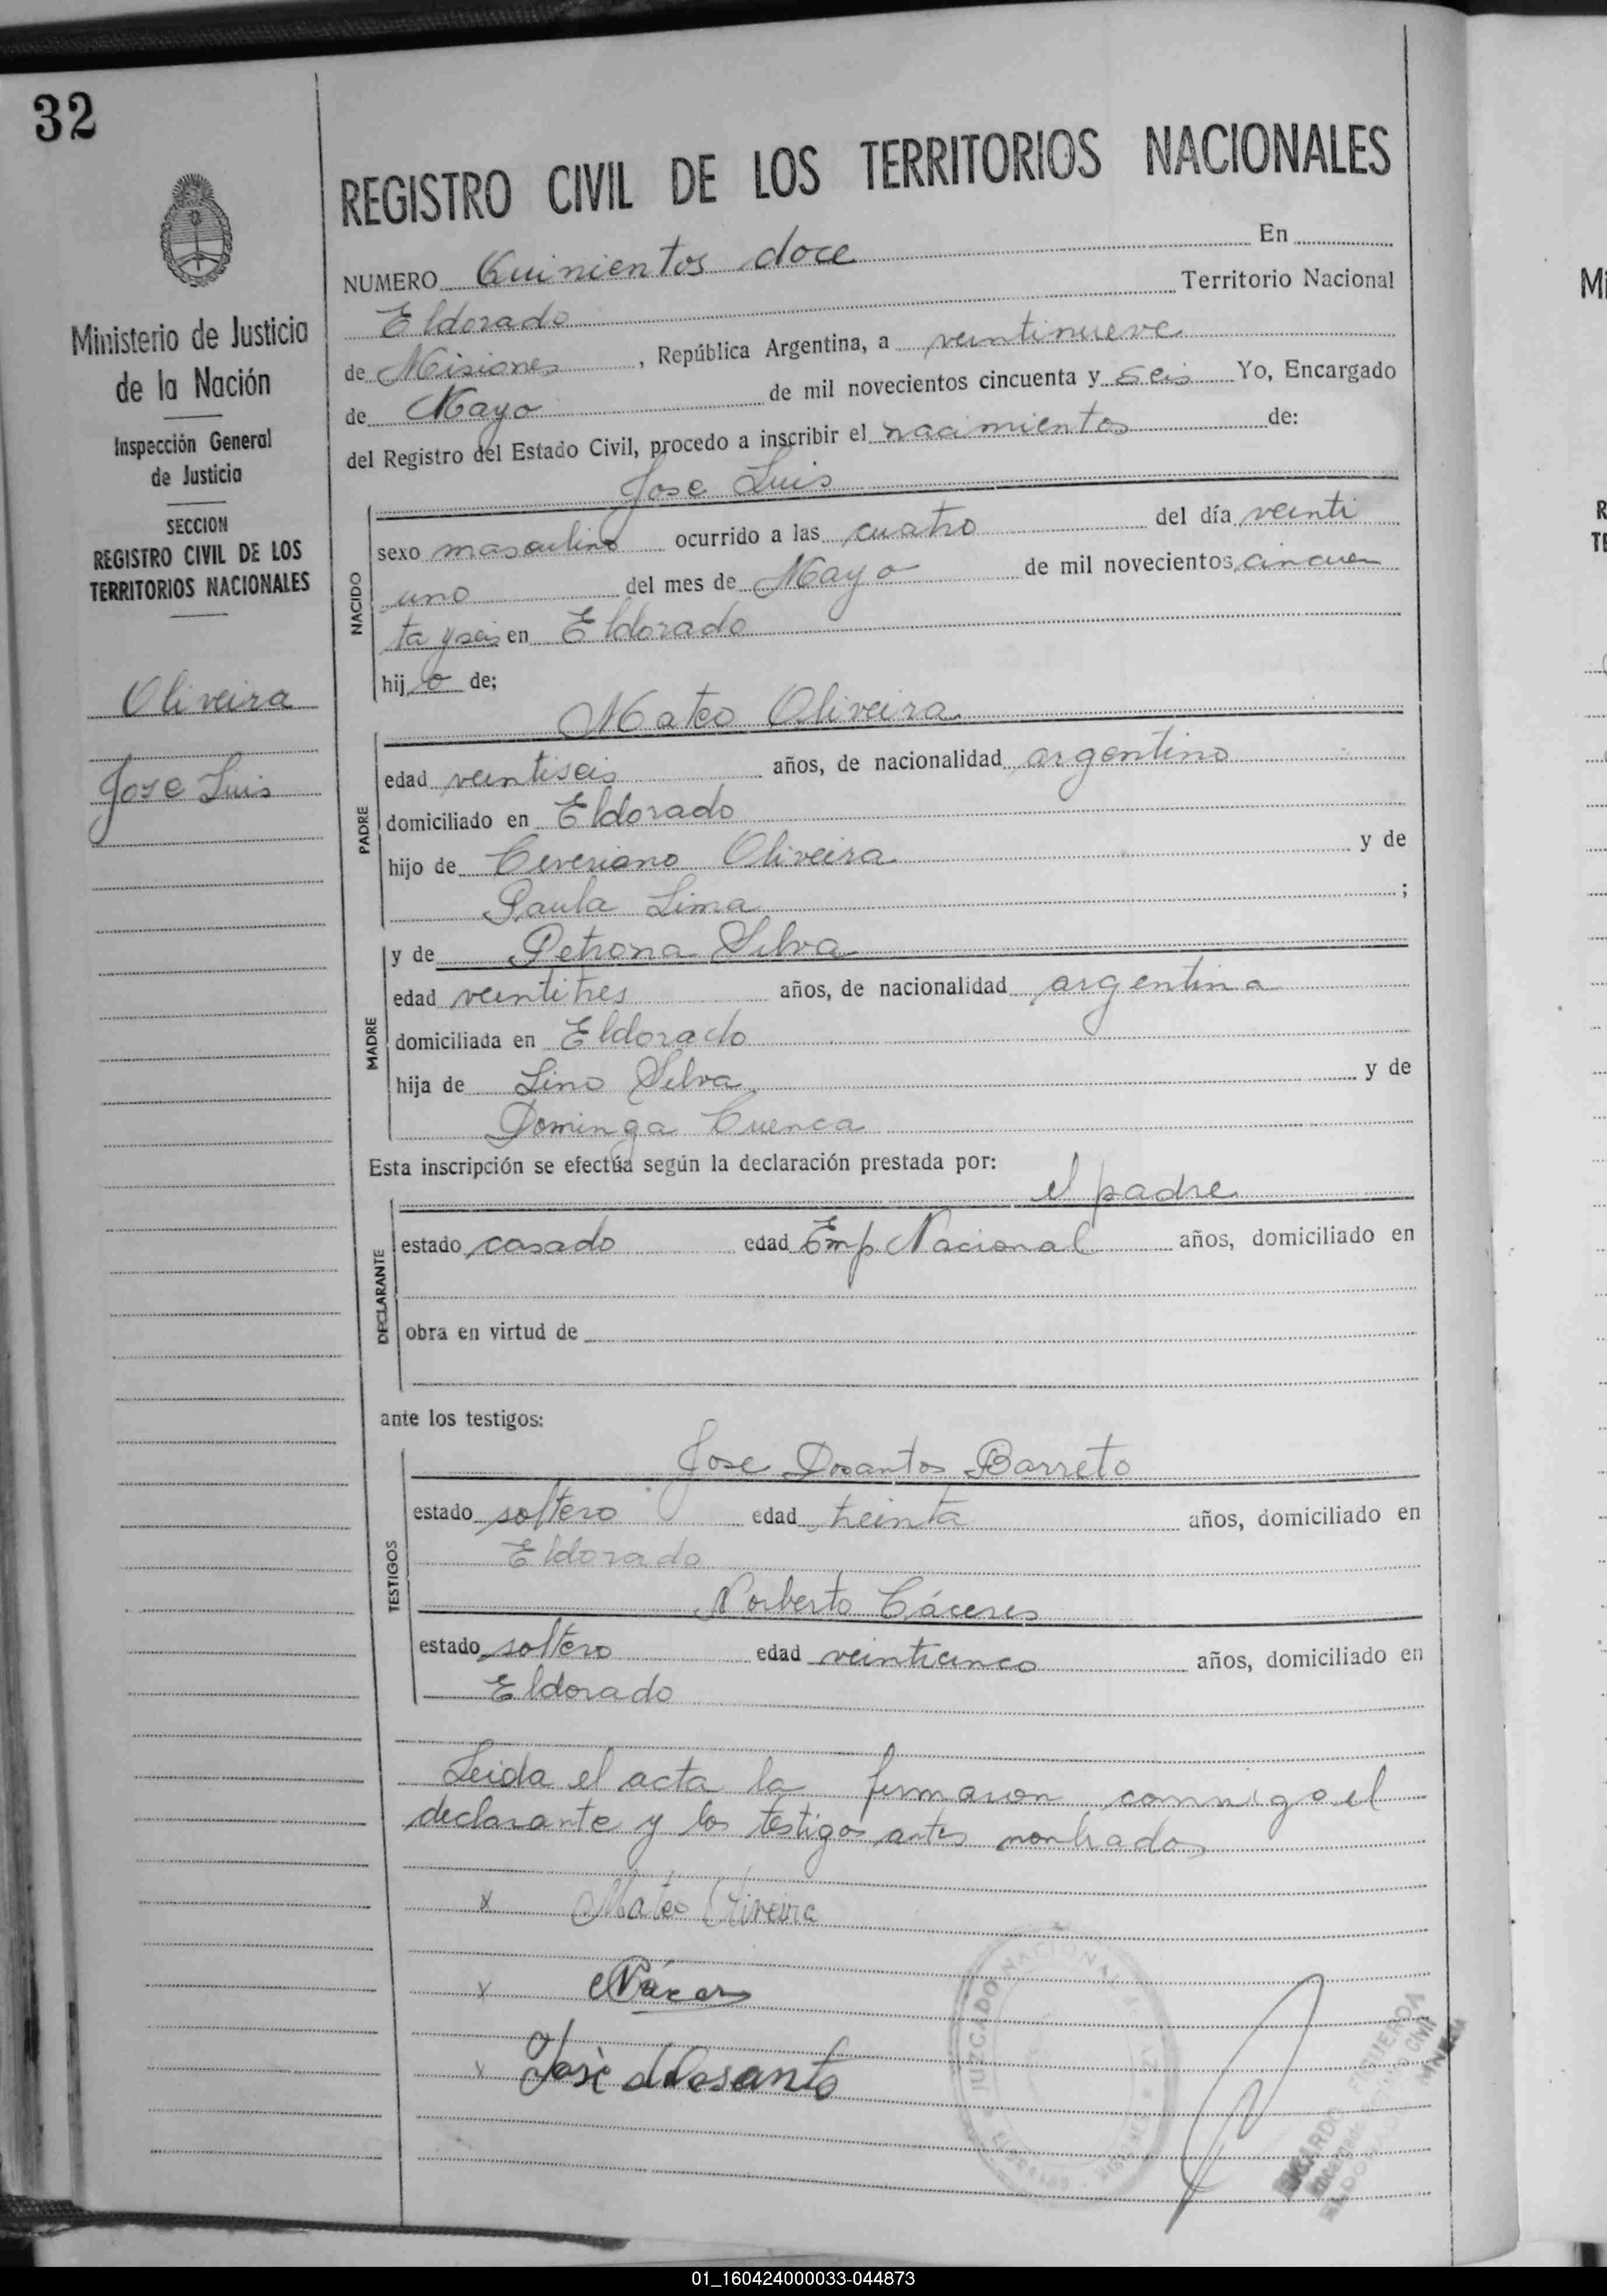 32
Ministerio de Justicia
de la Nación
Inspección General
de Justicia
SECCION
REGISTRO CIVIL DE LOS
TERRITORIOS NACIONALES
Oliveira
Jose Luis
REGISTRO CIVIL DE LOS TERRITORIOS NACIONALES
NUMERO Quinientos doce En
Eldorado Territorio Nacional
de Misiones, República Argentina, a veintinueve
de Mayo de mil novecientos cincuenta y seis Yo, Encargado
del Registro del Estado Civil, procedo a inscribir el nacimientos de:
NACIDO
Jose Luis
sexo masculino ocurrido a las cuatro del día veinti
uno del mes de Mayo de mil novecientos cincuen
ta y seis en Eldorado
hij o de;
PADRE
Mateo Oliveira
edad veintiseis años, de nacionalidad argentino
domiciliado en Eldorado
hijo de Ceveriano Oliveira y de
Paula Lima ;
MADRE
y de Petrona Silva
edad veintitres años, de nacionalidad argentina
domiciliada en Eldorado
hija de Lino Silva y de
Dominga Cuenca
Esta inscripción se efectúa según la declaración prestada por:
DECLARANTE
el padre
estado casado edad Emp. Nacional años, domiciliado en
obra en virtud de
ante los testigos:
TESTIGOS
Jose Dosantos Barreto
estado soltero edad treinta años, domiciliado en
Eldorado
Norberto Cáceres
estado soltero edad veinticinco años, domiciliado en
Eldorado
Leida el acta la firmaron conmigo el
declarante y los testigos antes nombrados
x Mateo Oliveira
x
x José dosanto
JUZGADO NACIONAL
01_160424000033-044873